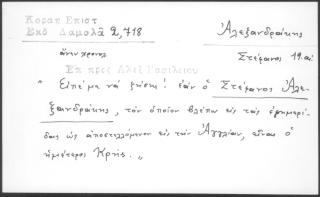 Κοραη Επιστ
Εκδ Δαμαλᾶ 2,718
Ἀλεξανδράκης
Στέφανος 19.αἰ.
ἄνευ χρονολ.
Επ πρὸς Ἀλεξ Βασιλειου
" Εἰπέ με νὰ ζήσῃς! ἐὰν ὁ Στέφανος Ἀλε-
ξανδράκης, τὸν ὁποῖον βλέπω εἰς τὰς ἐφημερί-
δας ὡς ἀποστελλόμενον εἰς τὴν Ἀγγλίαν, εἶναι ὁ
ἡμέτερος Κρής. "